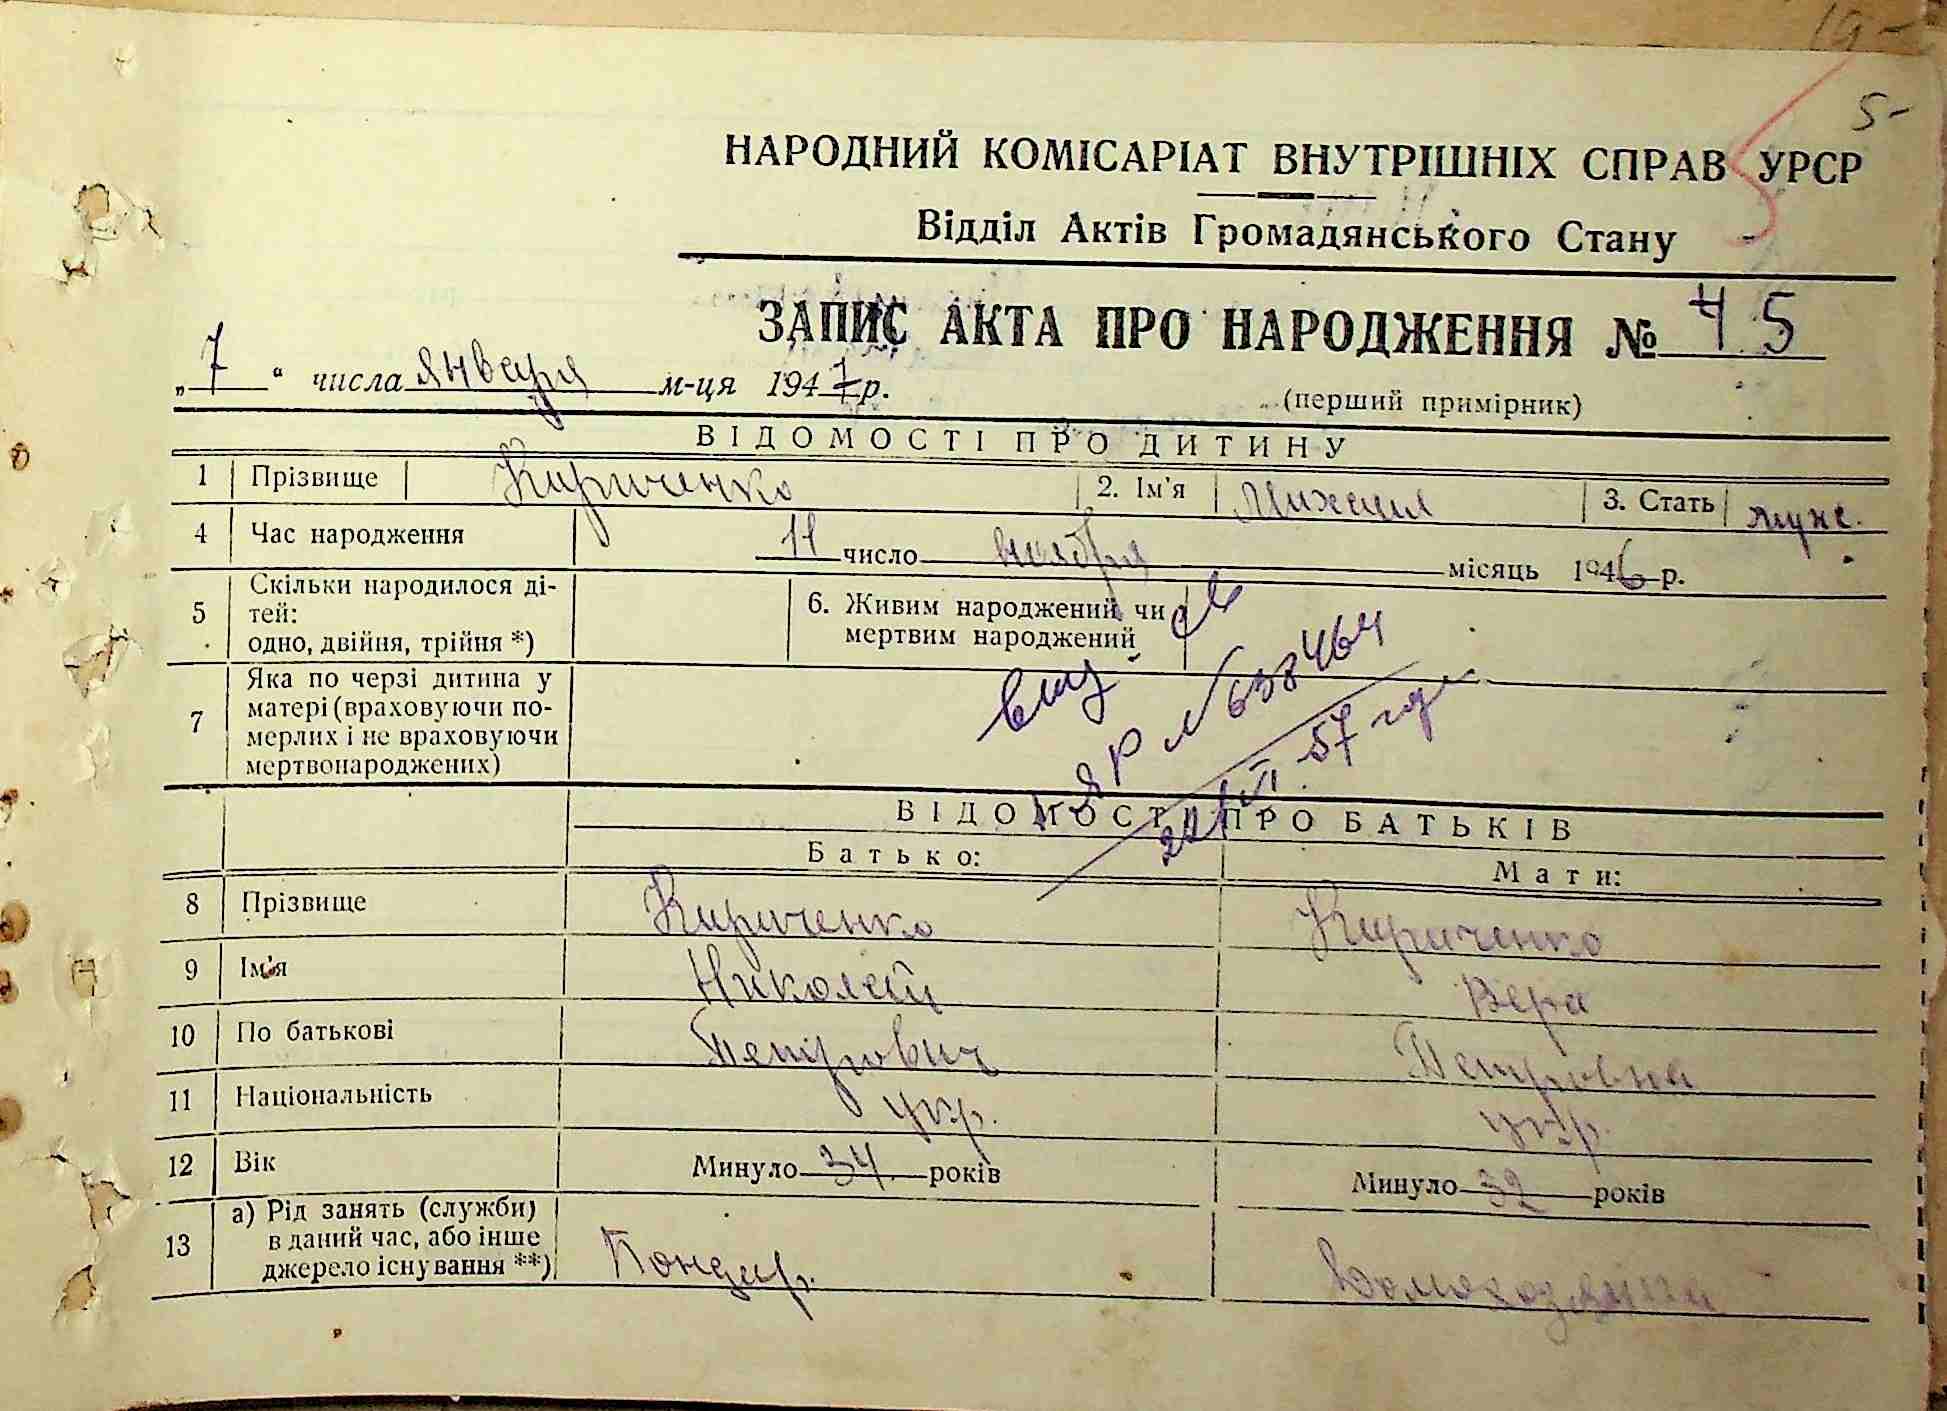 19-
5-
НАРОДНИЙ КОМІСАРІАТ ВНУТРІШНІХ СПРАВ УРСР
Відділ Актів Громадянського Стану
ЗАПИС АКТА ПРО НАРОДЖЕННЯ № 45
„ 7 “ числа января м-ця 1947 р.
(перший примірник)
ВІДОМОСТІ ПРО ДИТИНУ
1 Прізвище Кириченко 2. Ім'я Михаил 3. Стать муж.
4 Час народження 11 число ноября місяць 1946 р.
5 Скільки народилося ді-
тей:
одно, двійня, трійня *)
6. Живим народжений чи
мертвим народжений
7 Яка по черзі дитина у
матері (враховуючи по-
мерлих і не враховуючи
мертвонароджених)
№ 638464
57
ВІДОМОСТІ ПРО БАТЬКІВ
Батько: Мати:
8 Прізвище Кириченко Кириченко
9 Ім'я Николай Вера
10 По батькові Петрович Петровна
11 Національність укр. укр.
12 Вік Минуло 34 років Минуло 32 років
13 а) Рід занять (служби)
в даний час, або інше
джерело існування **)
Бондар. Домохозяйка